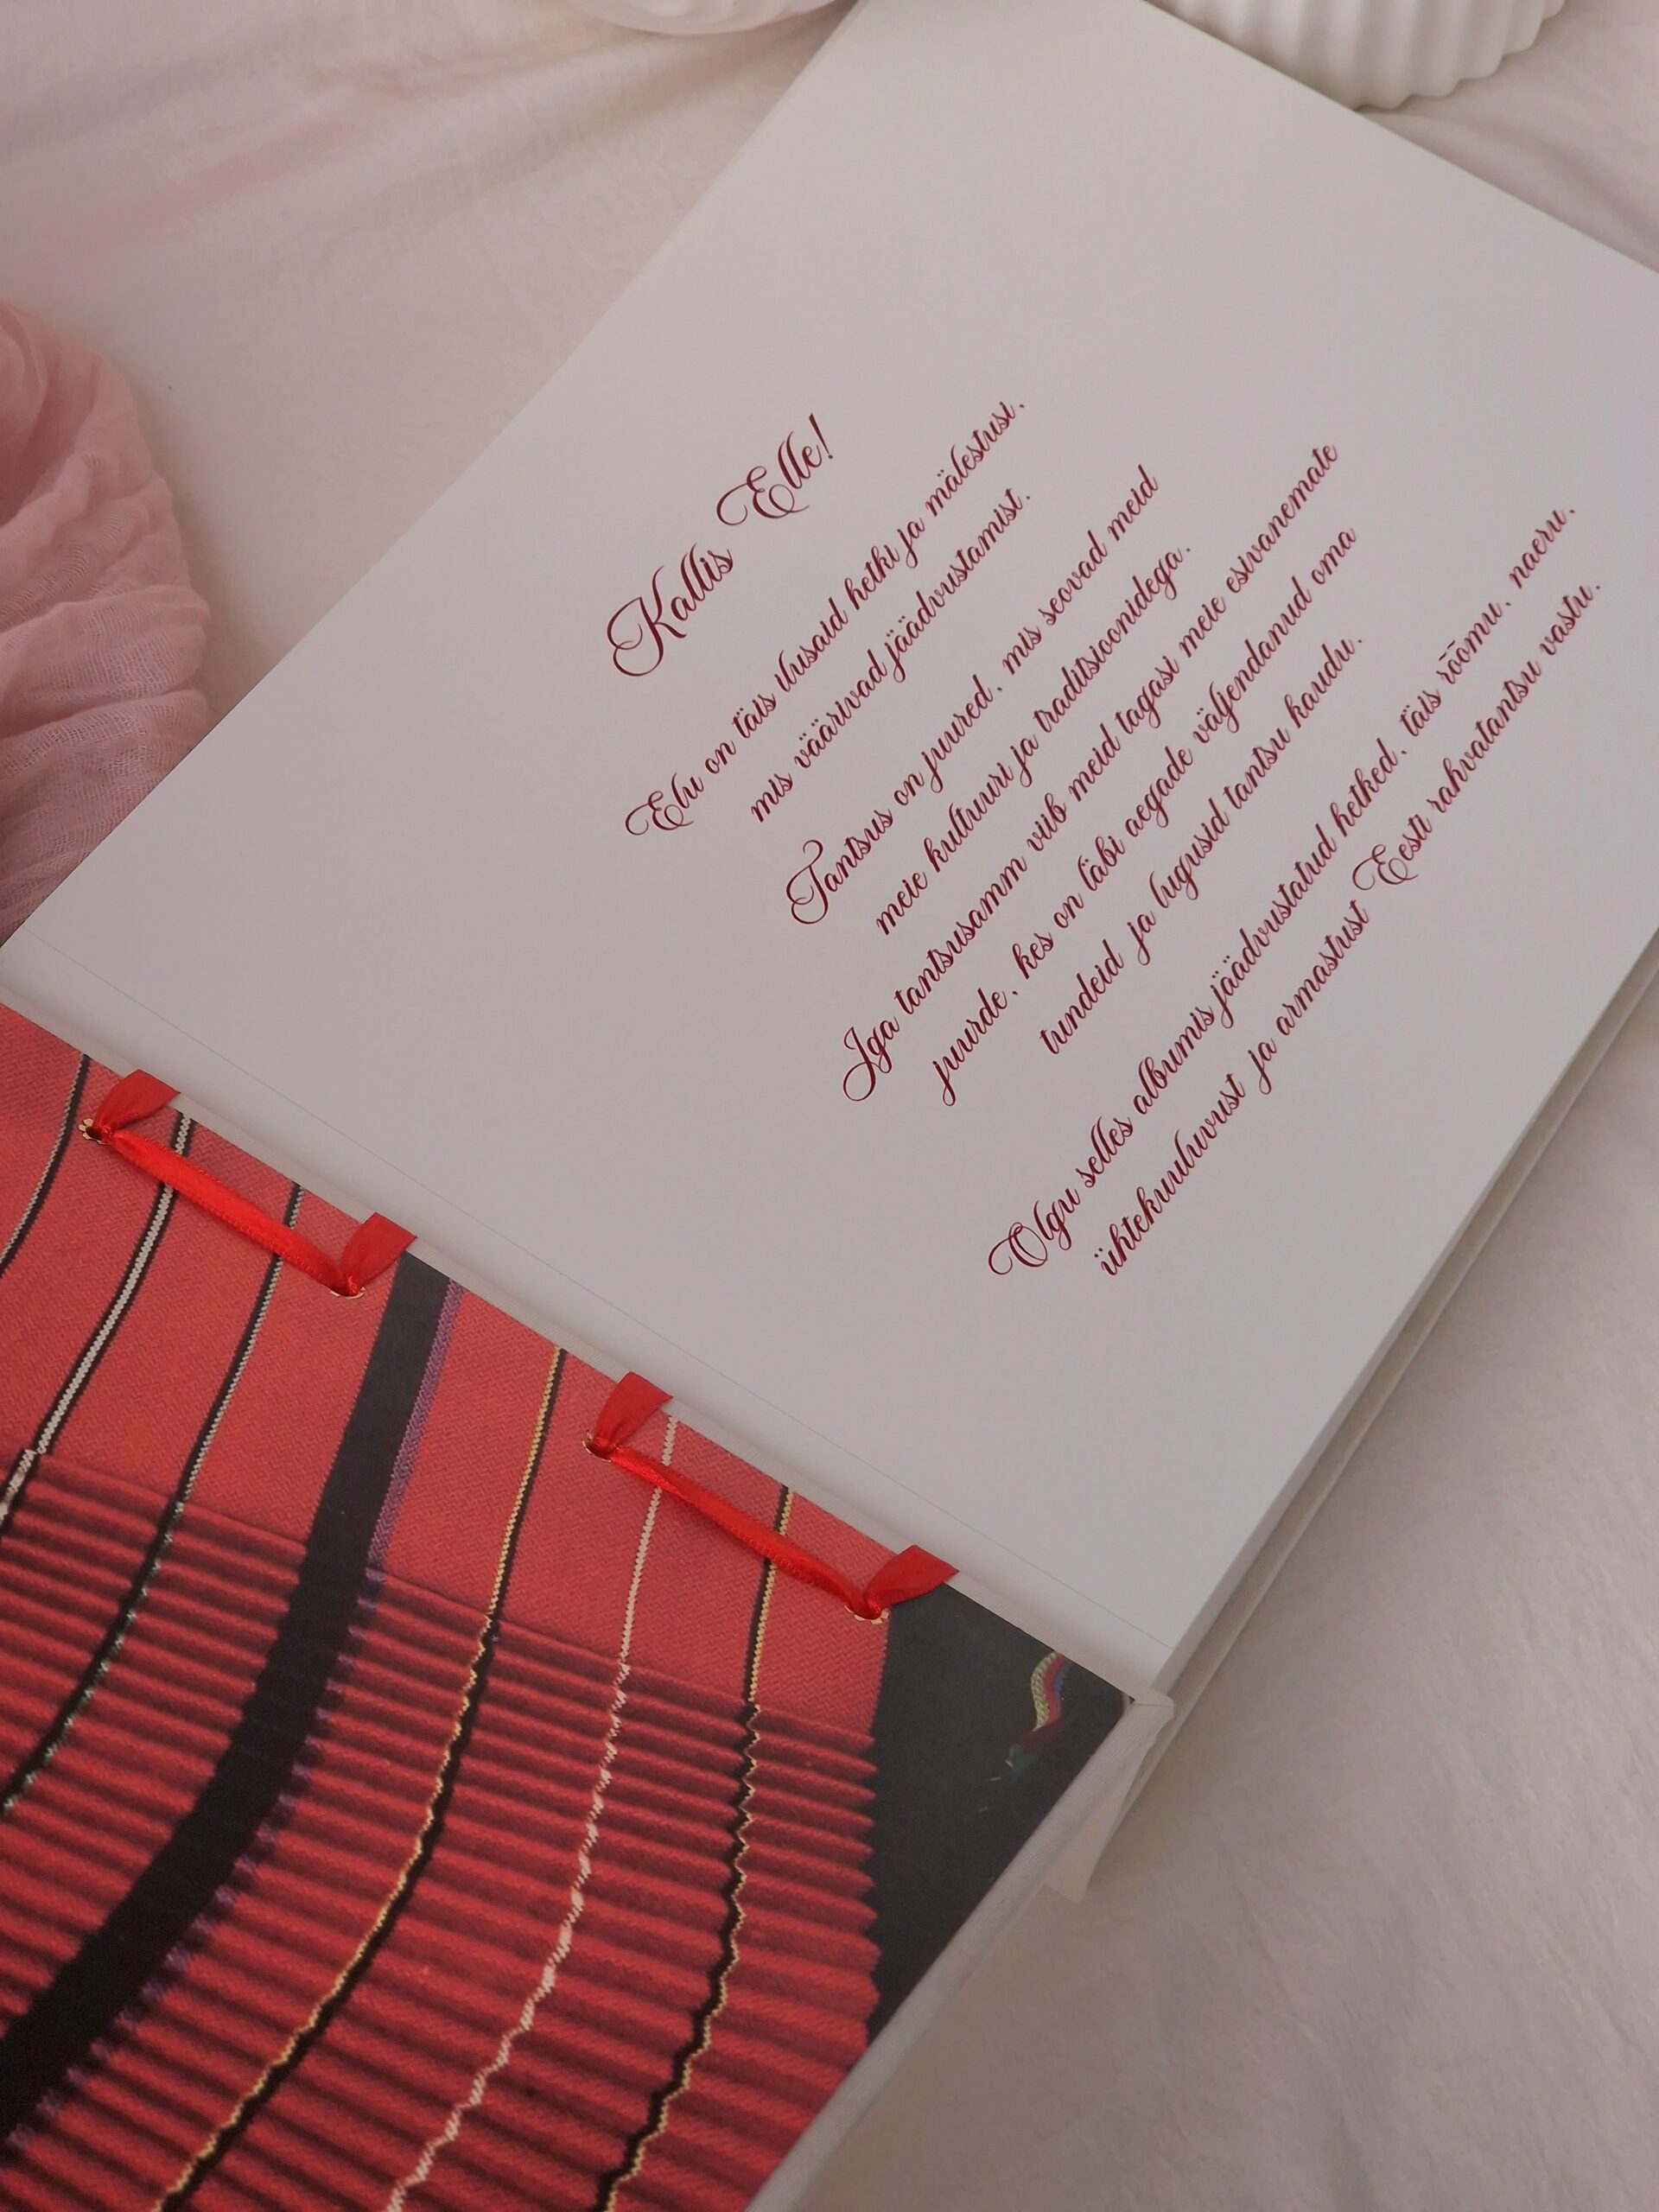 Kallis Elle!
Elu on täis ilusaid hetki ja mälestusi,
mis väärivad jäädvustamist.
Tantsus on juured, mis seovad meid
meie kultuuri ja traditsioonidega.
Iga tantsusamm viib meid tagasi meie esivanemate
juurde, kes on läbi aegade väljendanud oma
tundeid ja lugusid tantsu kaudu.
Olgu selles albumis jäädvustatud hetked, täis rõõmu, naeru,
ühtekuuluvust ja armastust Eesti rahvatantsu vastu.